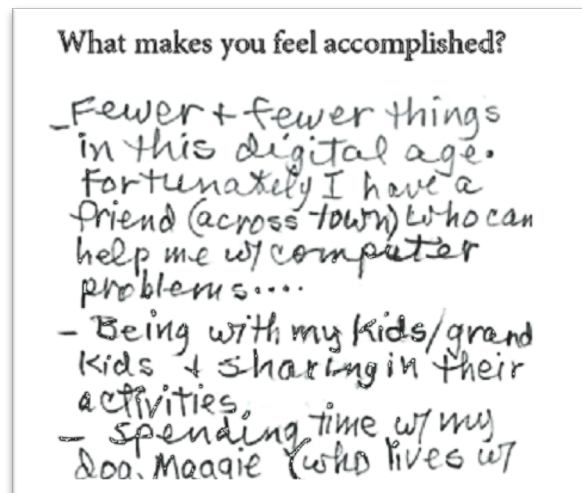 What makes you feel accomplished?
- Fewer + fewer things
in this digital age.
Fortunately I have a
friend (across town) who can
help me w/ computer
problems....
- Being with my kids/grand
kids + sharing in their
activities,
- spending time w/ my
dog, Maggie (who lives w/